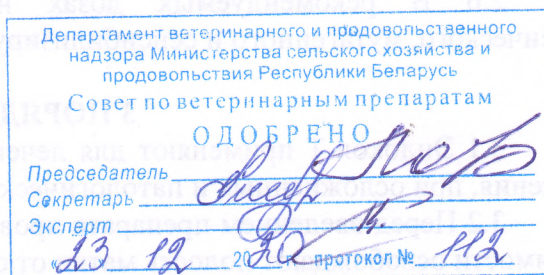 Департамент ветеринарного и продовольственного
надзора Министерства сельского хозяйства и
продовольствия Республики Беларусь
Совет по ветеринарным препаратам
ОДОБРЕНО
Председатель
Секретарь
Эксперт
«23 12 2020 протокол № 112